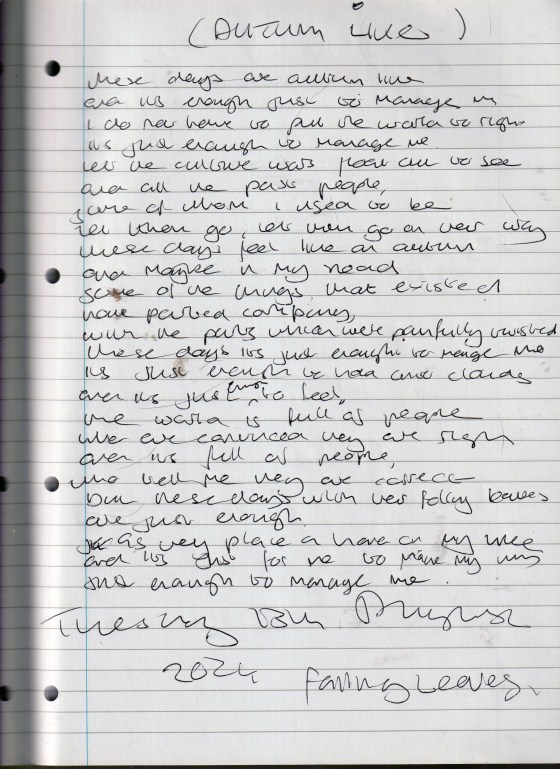 (Autumn Lines)
these days are autumn like
and its enough just to manage me
I do not have to put the world to right
its just enough to manage me
let the culture wars float out to sea
and all the past people,
some of whom I used to be
let them go, let them go on their way
these days feel like an autumn
and maybe in my head
some of the things that existed
have parted company,
with the parts which were painfully twisted
these days its just enough to manage me
its just enough to hold and clouds
and its just enough to feel,
the world is full of people
who are convinced they are right
and its full of people,
who tell me they are correct
but these days with their falling leaves
are just enough,
as they place a hand on my knee
and its for me to make my
just enough to manage me.
Tuesday 13th August
2024 Falling Leaves.